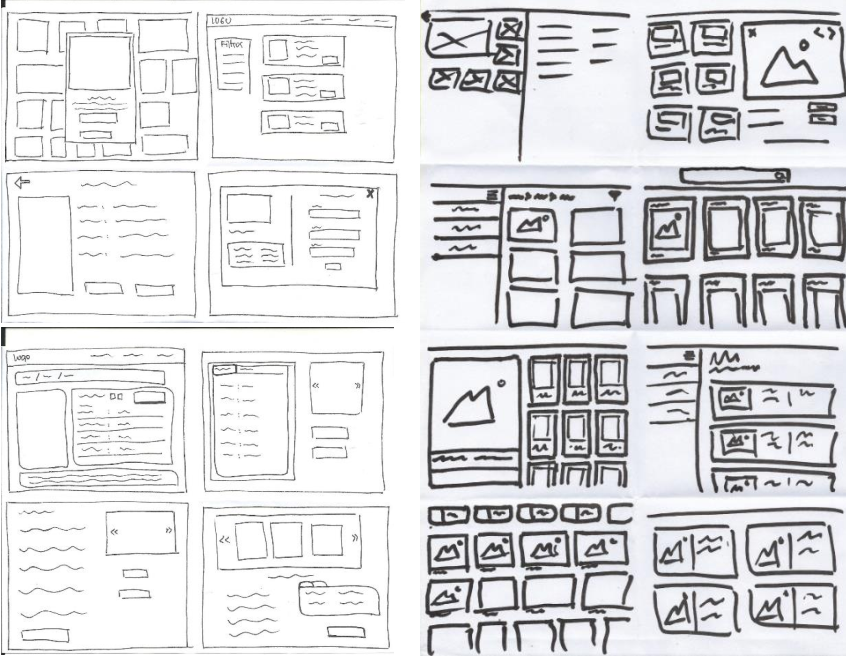 LOGO
Filtros
X
Logo